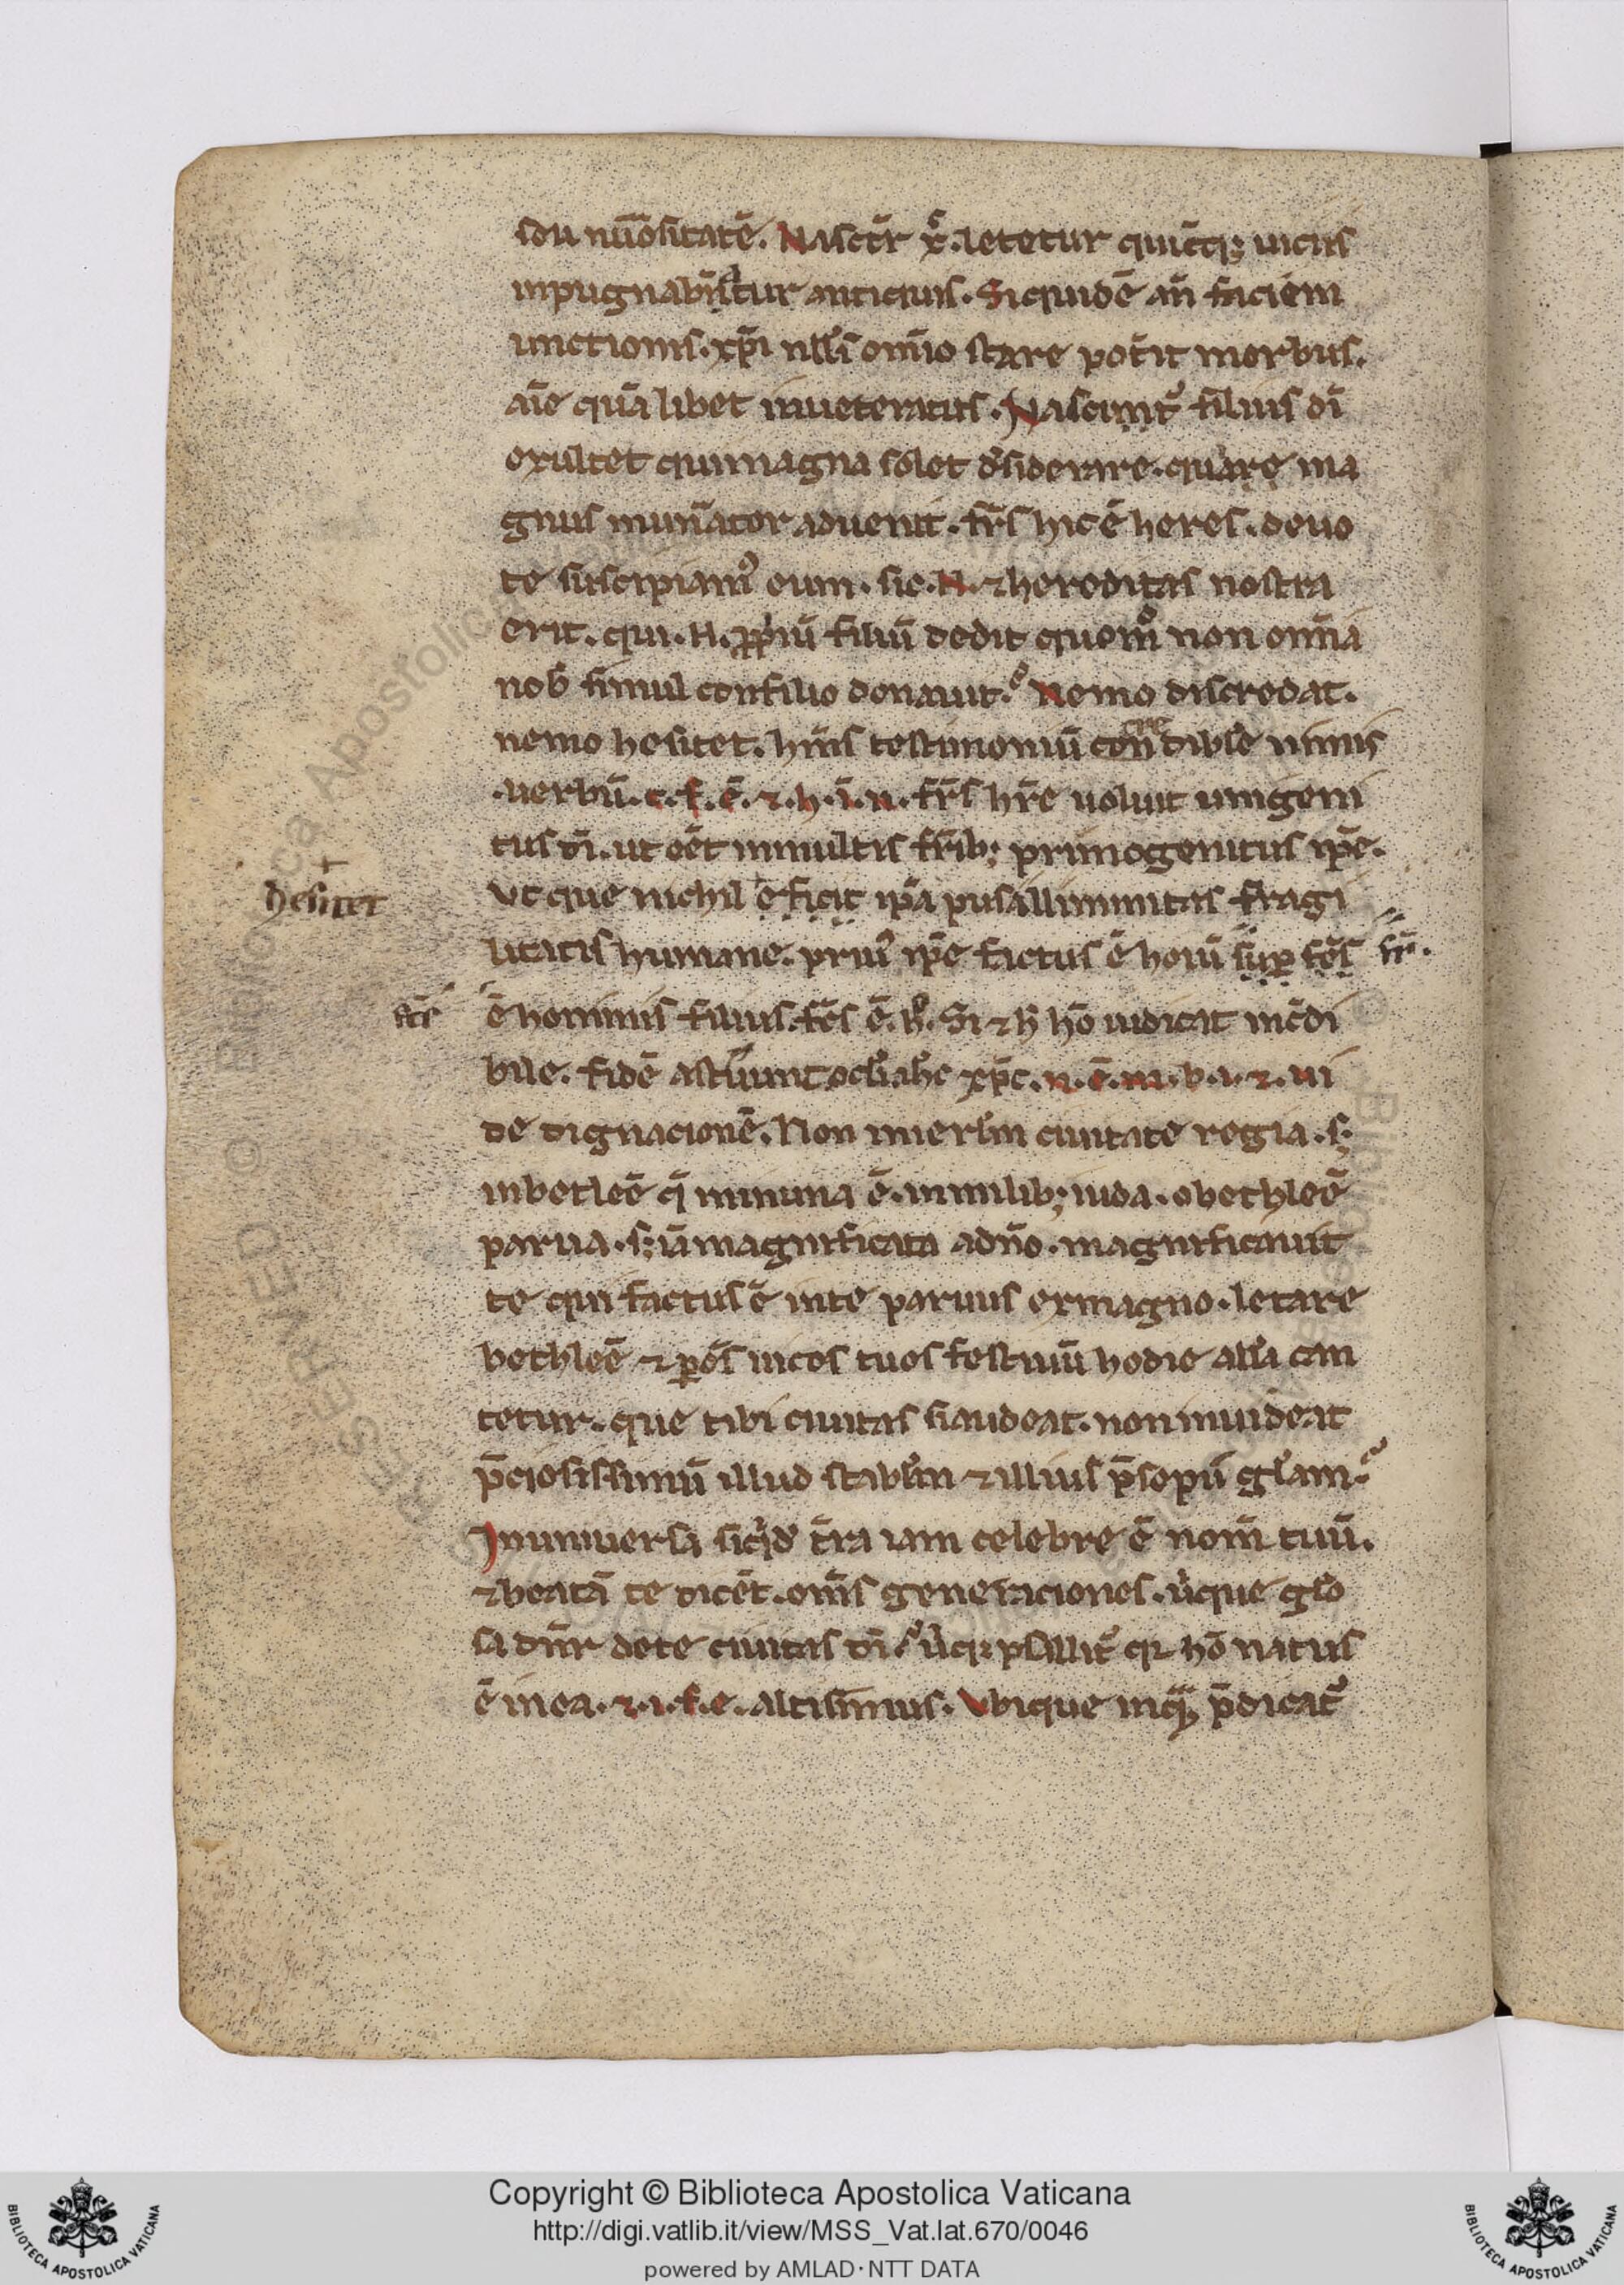 sou nūōsitatē. Nascit̄r x᷒. letetur quic̄q; uiciis
inpugnabn̄atur antiquis. Siquidē an̄ faciem
unctionis. xp̄i nll᷒s om̄io stare pot̄it morbus.
aīe quālibet inueteratus. Nascint᷒ filius dī
exultet quimagna solet d̓siderare. quare ma
gnus munātor aduenit. fr̄s hic ē heres. deuo
te suscipiam᷒ eum. sic. N. ⁊hereditas nostra
erit. qui. N. ꝓpriū filiū dedit quom̊ non omīa
nob̄ simul confilio donauit. Nemo discredat.
nemo hesitet. h̄m̄s testimoniū concredible nimis
.uerbū. c. f. ē. ⁊. h. ī. n. fr̄s hr̄e uoluit unigeni
tus dī. ut eēt inmultis frīb; primogenitus ip̄e.
Hesitet
Vt que nichil eficit ip̄a pusillimitas fragi
litatis humane. priu᷒ ip̄e factus ē hoiū sup fc̄s fr̄.
fc̄s
ē hominis filius. fc̄s ē. h̊. Si ⁊ h̄ hō iudicat inc̄di
bile. fidē astruunt ocl̄i. ahc xp̄c. n. ē. m. b. i. ⁊. ui
de dignacionē. Non inierl̄m ciuitate regia. s;
inbetleē q̄ minima ē. inmilib; iuda. obethleē
parua. s; iā magnificata adn̄o. magnificauit
te qui factus ē inte paruus exmagno. letare
bethleē ⁊ ꝑōs uicos tuos festiuū hodie all̓a can
tetur. que tibi ciuitas siaudeat. non inuideat
p̄ciosissimū illud stabl̄m ⁊ illius p̄sopū gl̓am.
Inuniuersa siq̇d t̄ra iam celebre ē nom̄ tuū.
⁊beatā te dicēt. om̄s generaciones. u̇que glō
sa dn̄r dete ciuitas dī. u̇cq; psallit᷒ qꝛ hō natus
ē inea. ⁊. i. f. e. altisīmus. Vbique inqͣ; p̄dicat᷒
Copyright © Biblioteca Apostolica Vaticana
http://digi.vatlib.it/view/MSS_Vat.lat.670/0046
powered by AMLAD·NTT DATA
BIBLIOTECA APOSTOLICA VATICANA
BIBLIOTECA APOSTOLICA VATICANA